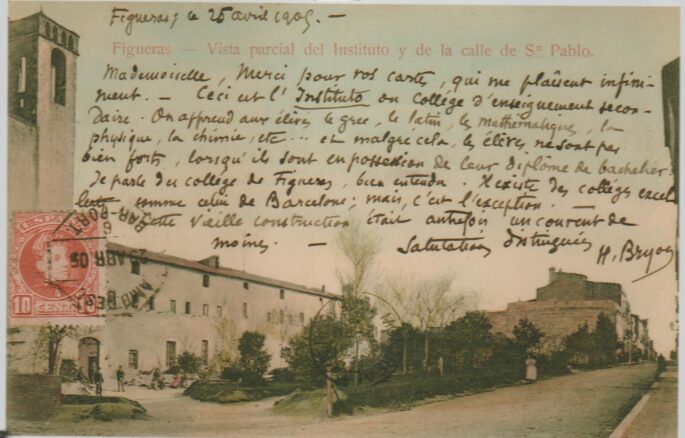 Figueras, le 25 avril 1905. —
Figueras — Vista parcial del Instituto y de la calle de Sn Pablo.
Mademoiselle, Merci pour vos cartes, qui me plaisent infini-
ment. — Ceci est l'Instituto ou Collège d'enseignement secon-
daire. On apprend aux élèves le grec, le latin, les mathématiques, la
physique, la chimie, etc... et malgré cela, les élèves ne sont pas
bien forts, lorsqu'ils sont en possession de leur diplôme de bachelier.
Je parle du collège de Figueras, bien entendu. Il existe des collèges excel-
lents comme celui de Barcelone; mais, c'est l'exception. —
Cette vieille construction était autrefois un couvent de
moines. — Salutations distinguées
H.
ESPAÑA
10 CENT. 10
AMB. DESC.
25 ABR 05
BAR-PORT.